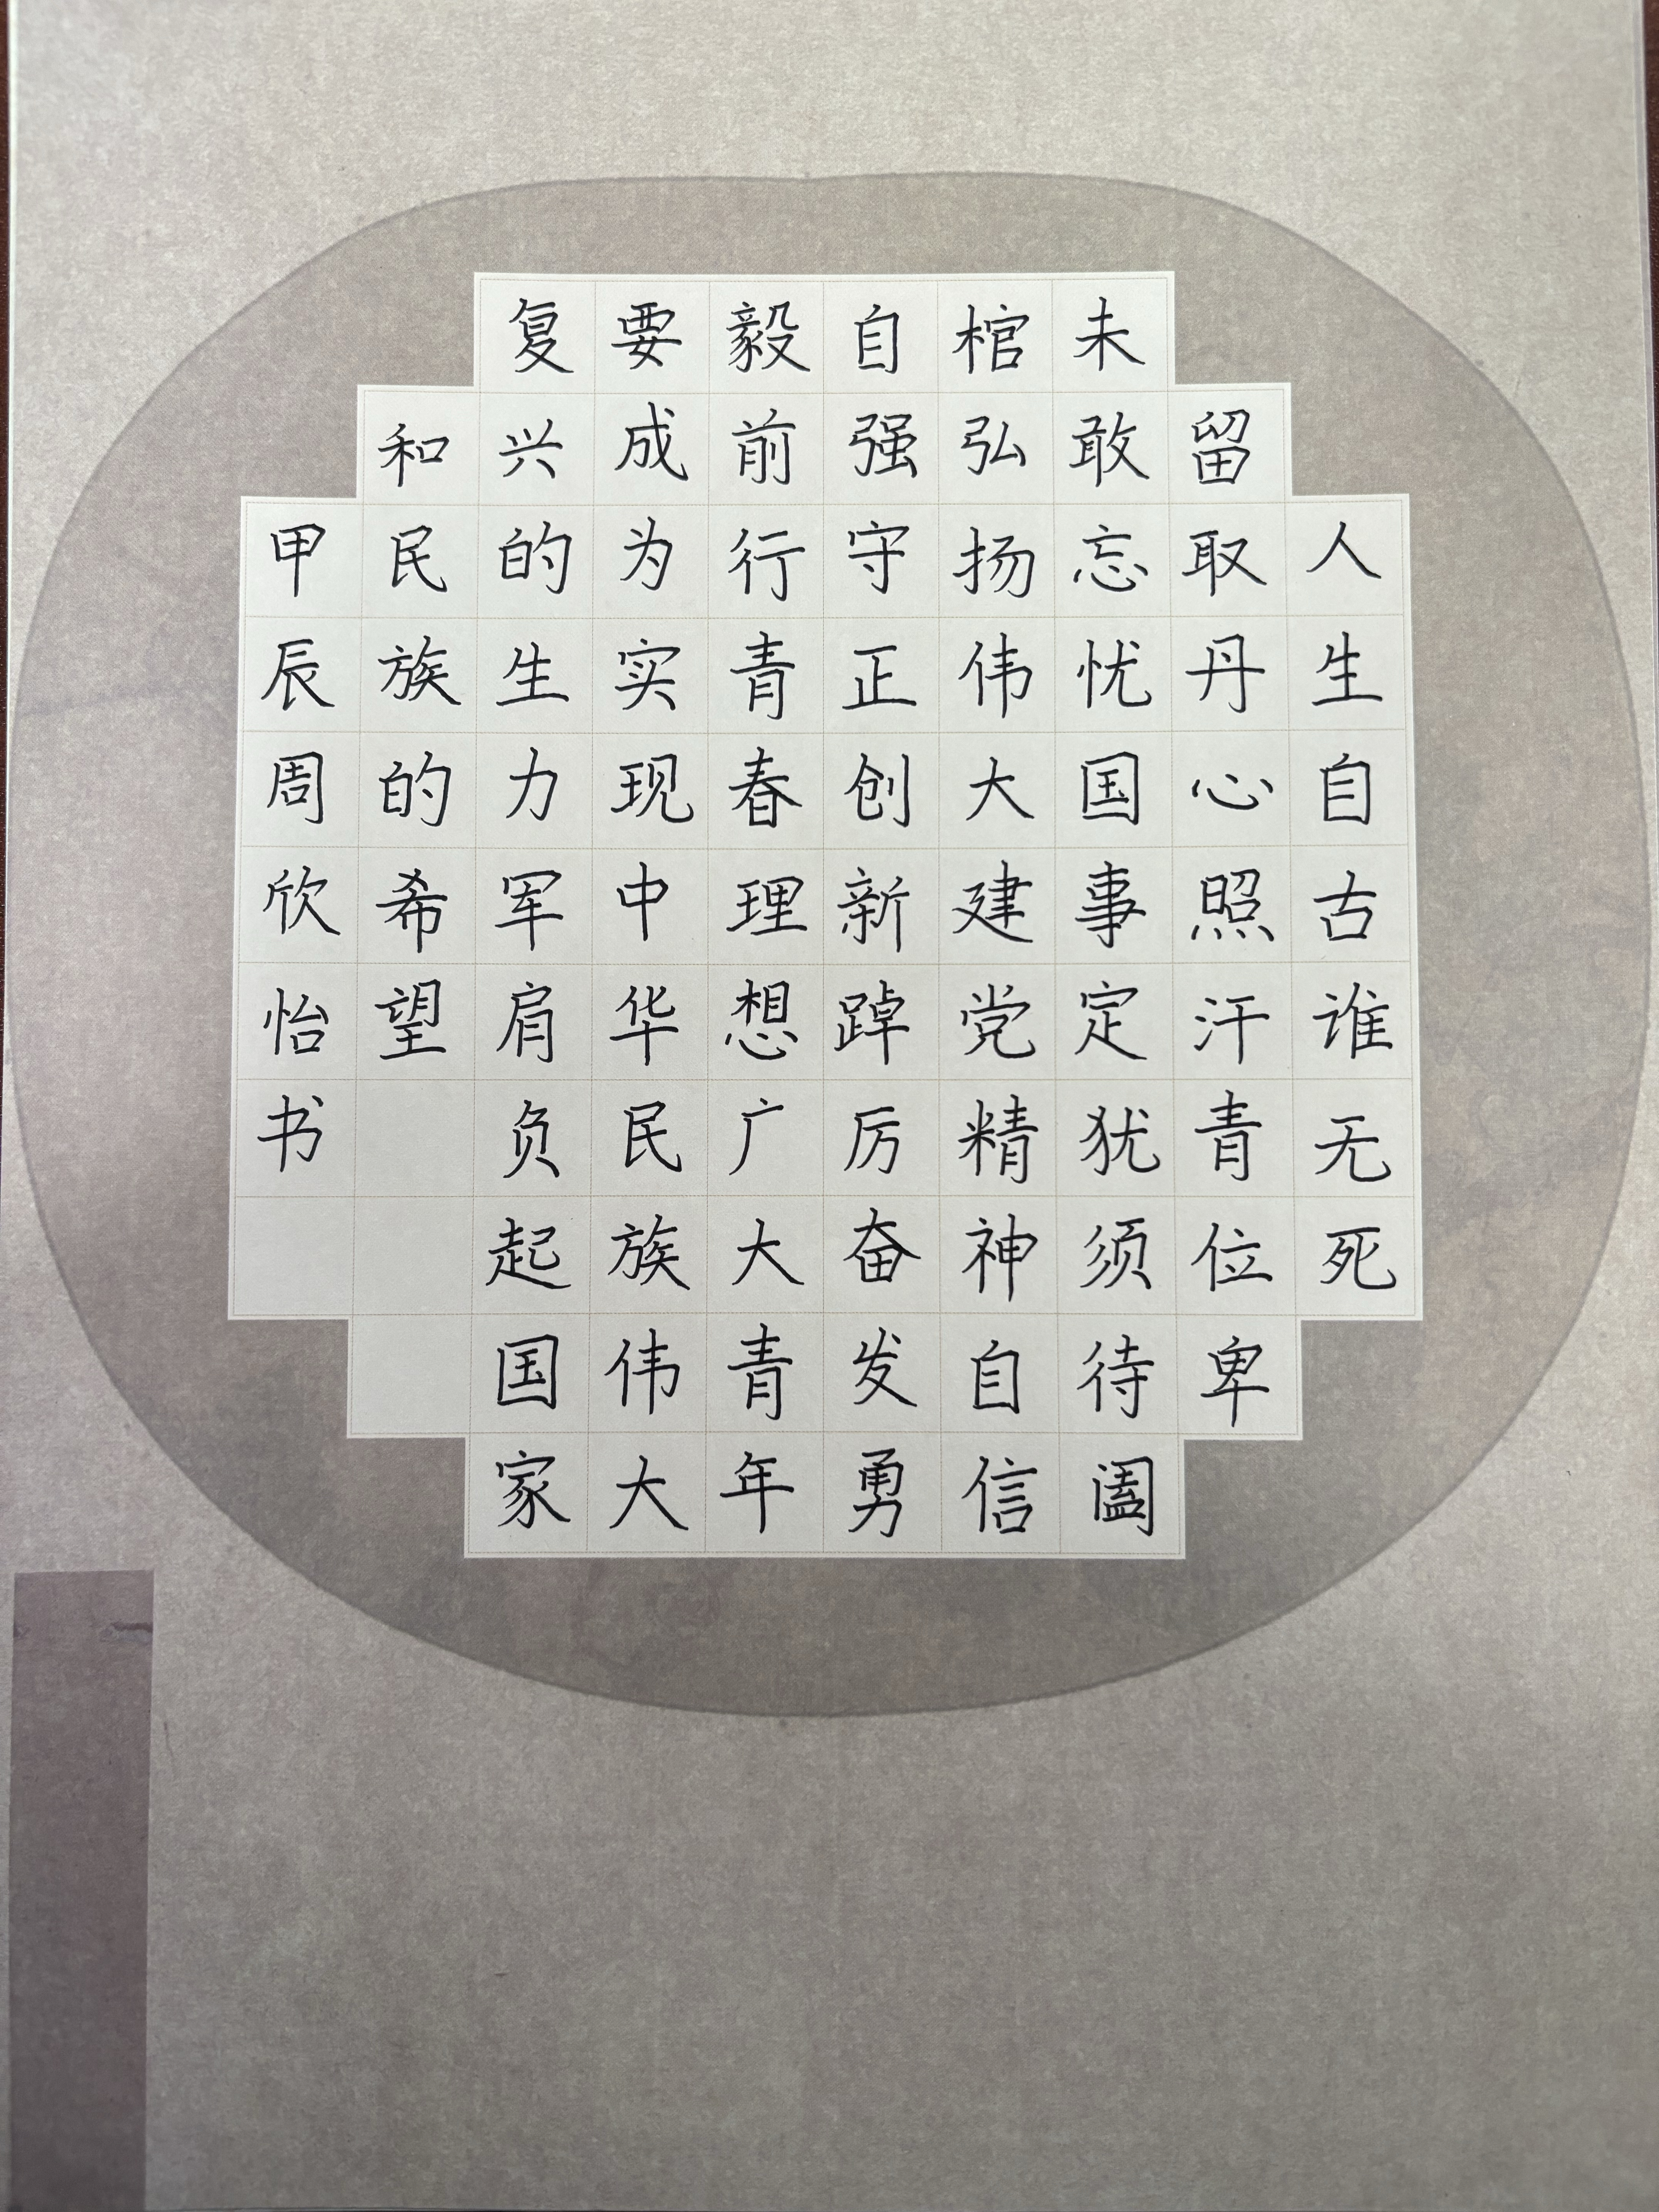 人生自古谁无死
留取丹心照汗青位卑
未敢忘忧国事定犹须待阖
棺弘扬伟大建党精神自信
自强守正创新踔厉奋发勇
毅前行青春理想广大青年
要成为实现中华民族伟大
复兴的生力军肩负起国家
和民族的希望
甲辰周欣怡书